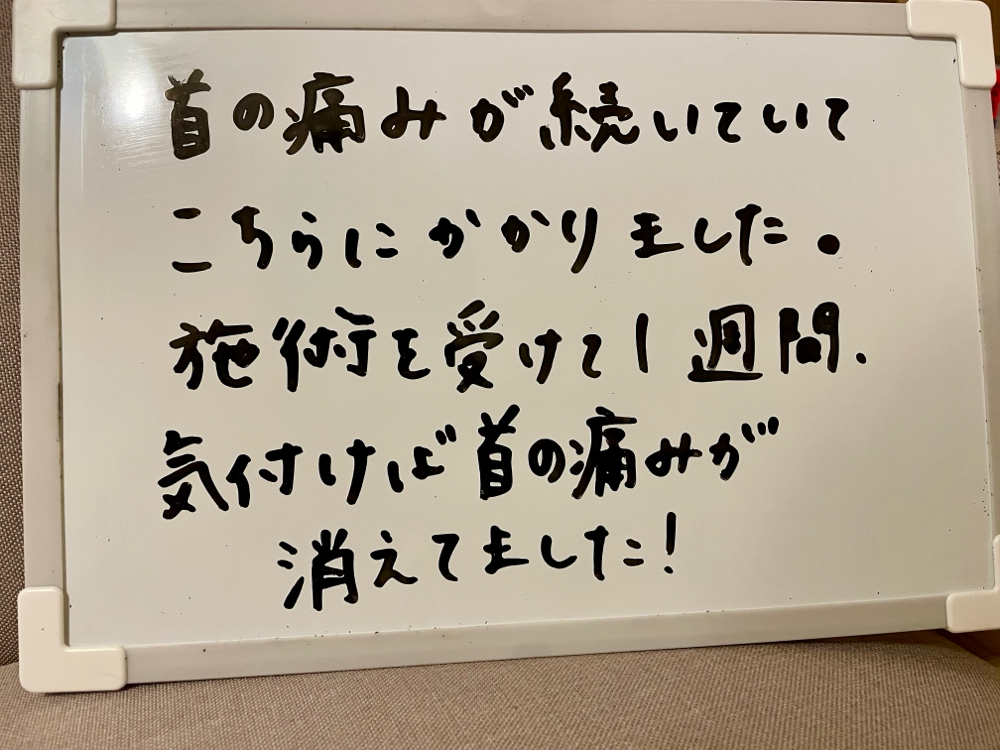 首の痛みが続いていて
こちらにかかりました。
施術を受けて1週間、
気付けば首の痛みが
消えてました!